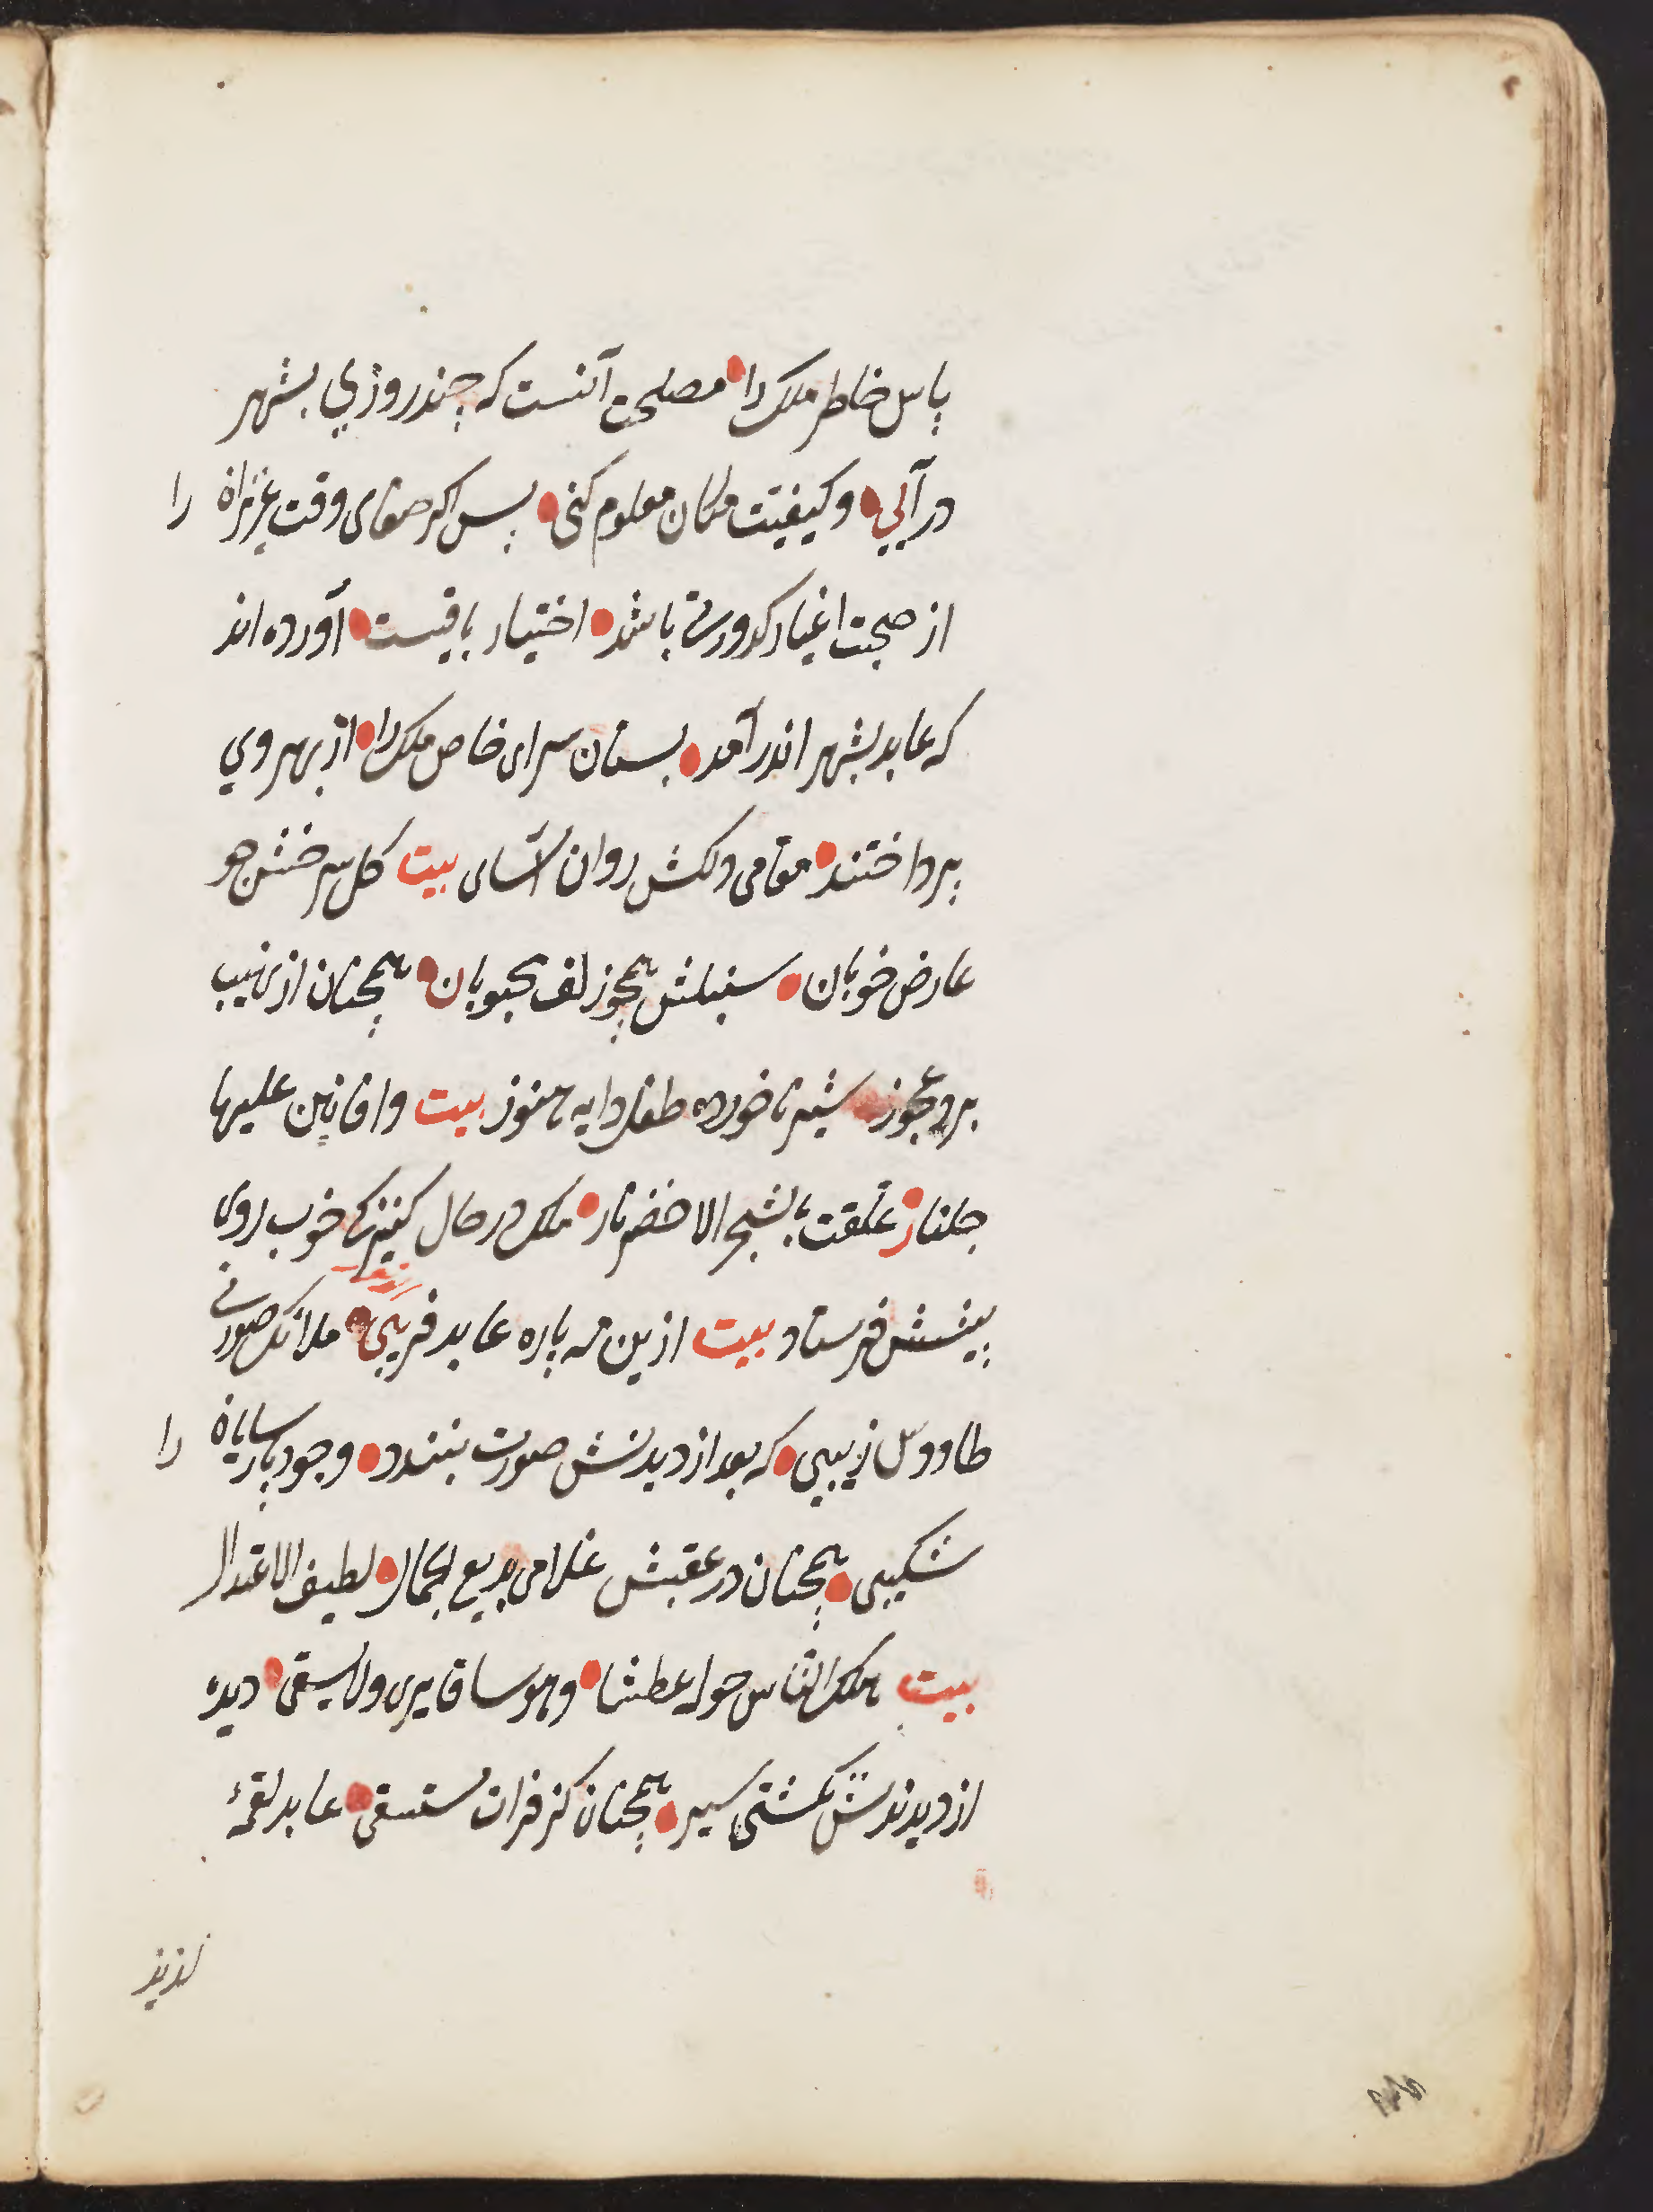 پاس خاطر ملک را مصلحت آنست که چند روزي بشهر
در آیي و کیفیت مکان معلوم کنی پس اکر صفای وقت عزیزان را
از صحبت اغیار کدورتی باشد اختیار باقیست آورده اند
که عابد بشهر اندر آمد بستان سرای خاص ملک را از بهر وي
پرداختند مقامی دلکش روان آسای بیت کل سرخش چو
عارض خوبان سنبلش همچو زلف محبوبان همچنان از نهیب
برد عجوز شیر ناخورده طفل دایه هنوز بیت وافانین علیها
جلنار علقت بالشجر الاخضر نار ملک در حال کنیزکی خوب روی
پیشش فرستاد بیت ازین مه پاره عابد فریبی ملائک صورتی
طاووس زیبی که بعد از دیدنش صورت نبندد وجود پارسایان را
شکیبی همچنان در عقبش غلامی بدیع الجمال لطیف الاعتدال
بیت هلک الناس حوله عطشا وهو ساق یری ولا یسقی دیده
از دیدنش نکشتی سیر همچنان کز فرات مستسقی عابد لقمهٔ
لذیذ